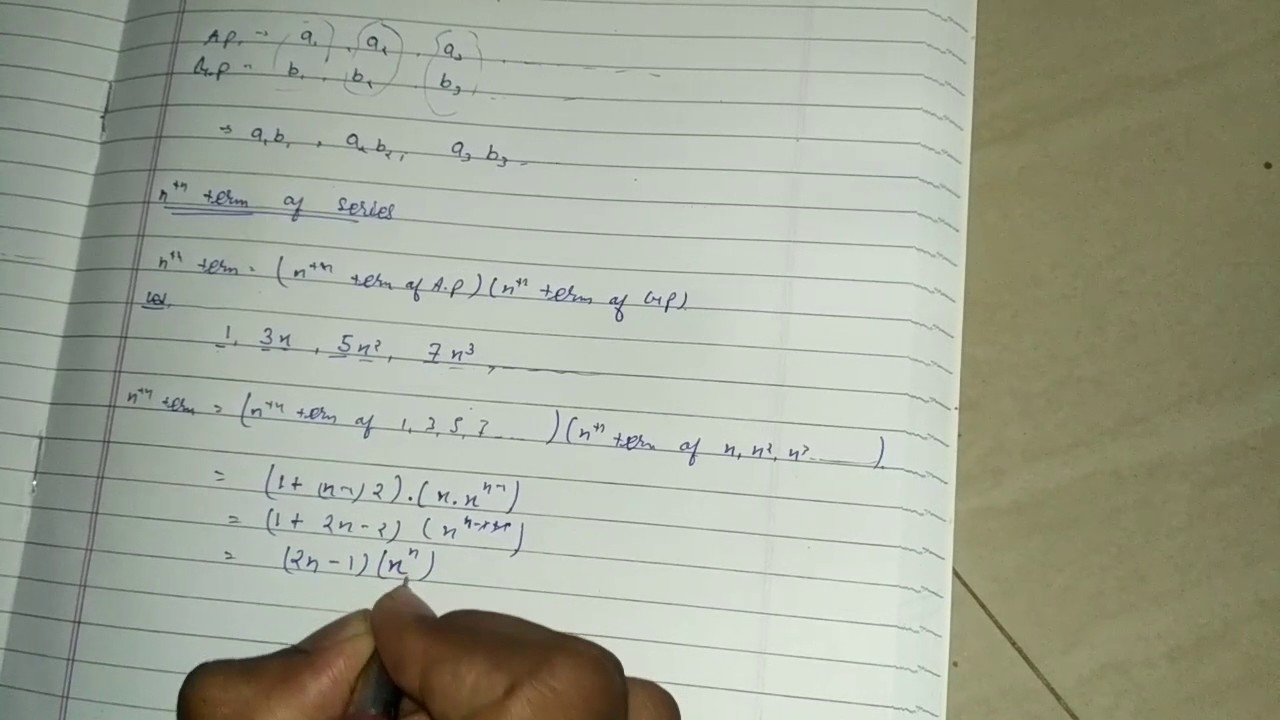 A.P. → a₁, a₂, a₃
G.P - b₁, b₂, b₃
→ a₁b₁, a₂b₂, a₃b₃
nᵗʰ term of series
nᵗʰ term = (nᵗʰ term of A.P) (nᵗʰ term of G.P)
1, 3x, 5x², 7x³,
nᵗʰ term = (nᵗʰ term of 1, 3, 5, 7 ......) (nᵗʰ term of x, x², x³ ......)
= (1 + (n-1) 2) . (x . xⁿ⁻¹)
= (1 + 2n - 2)
= (2n - 1) (xⁿ)